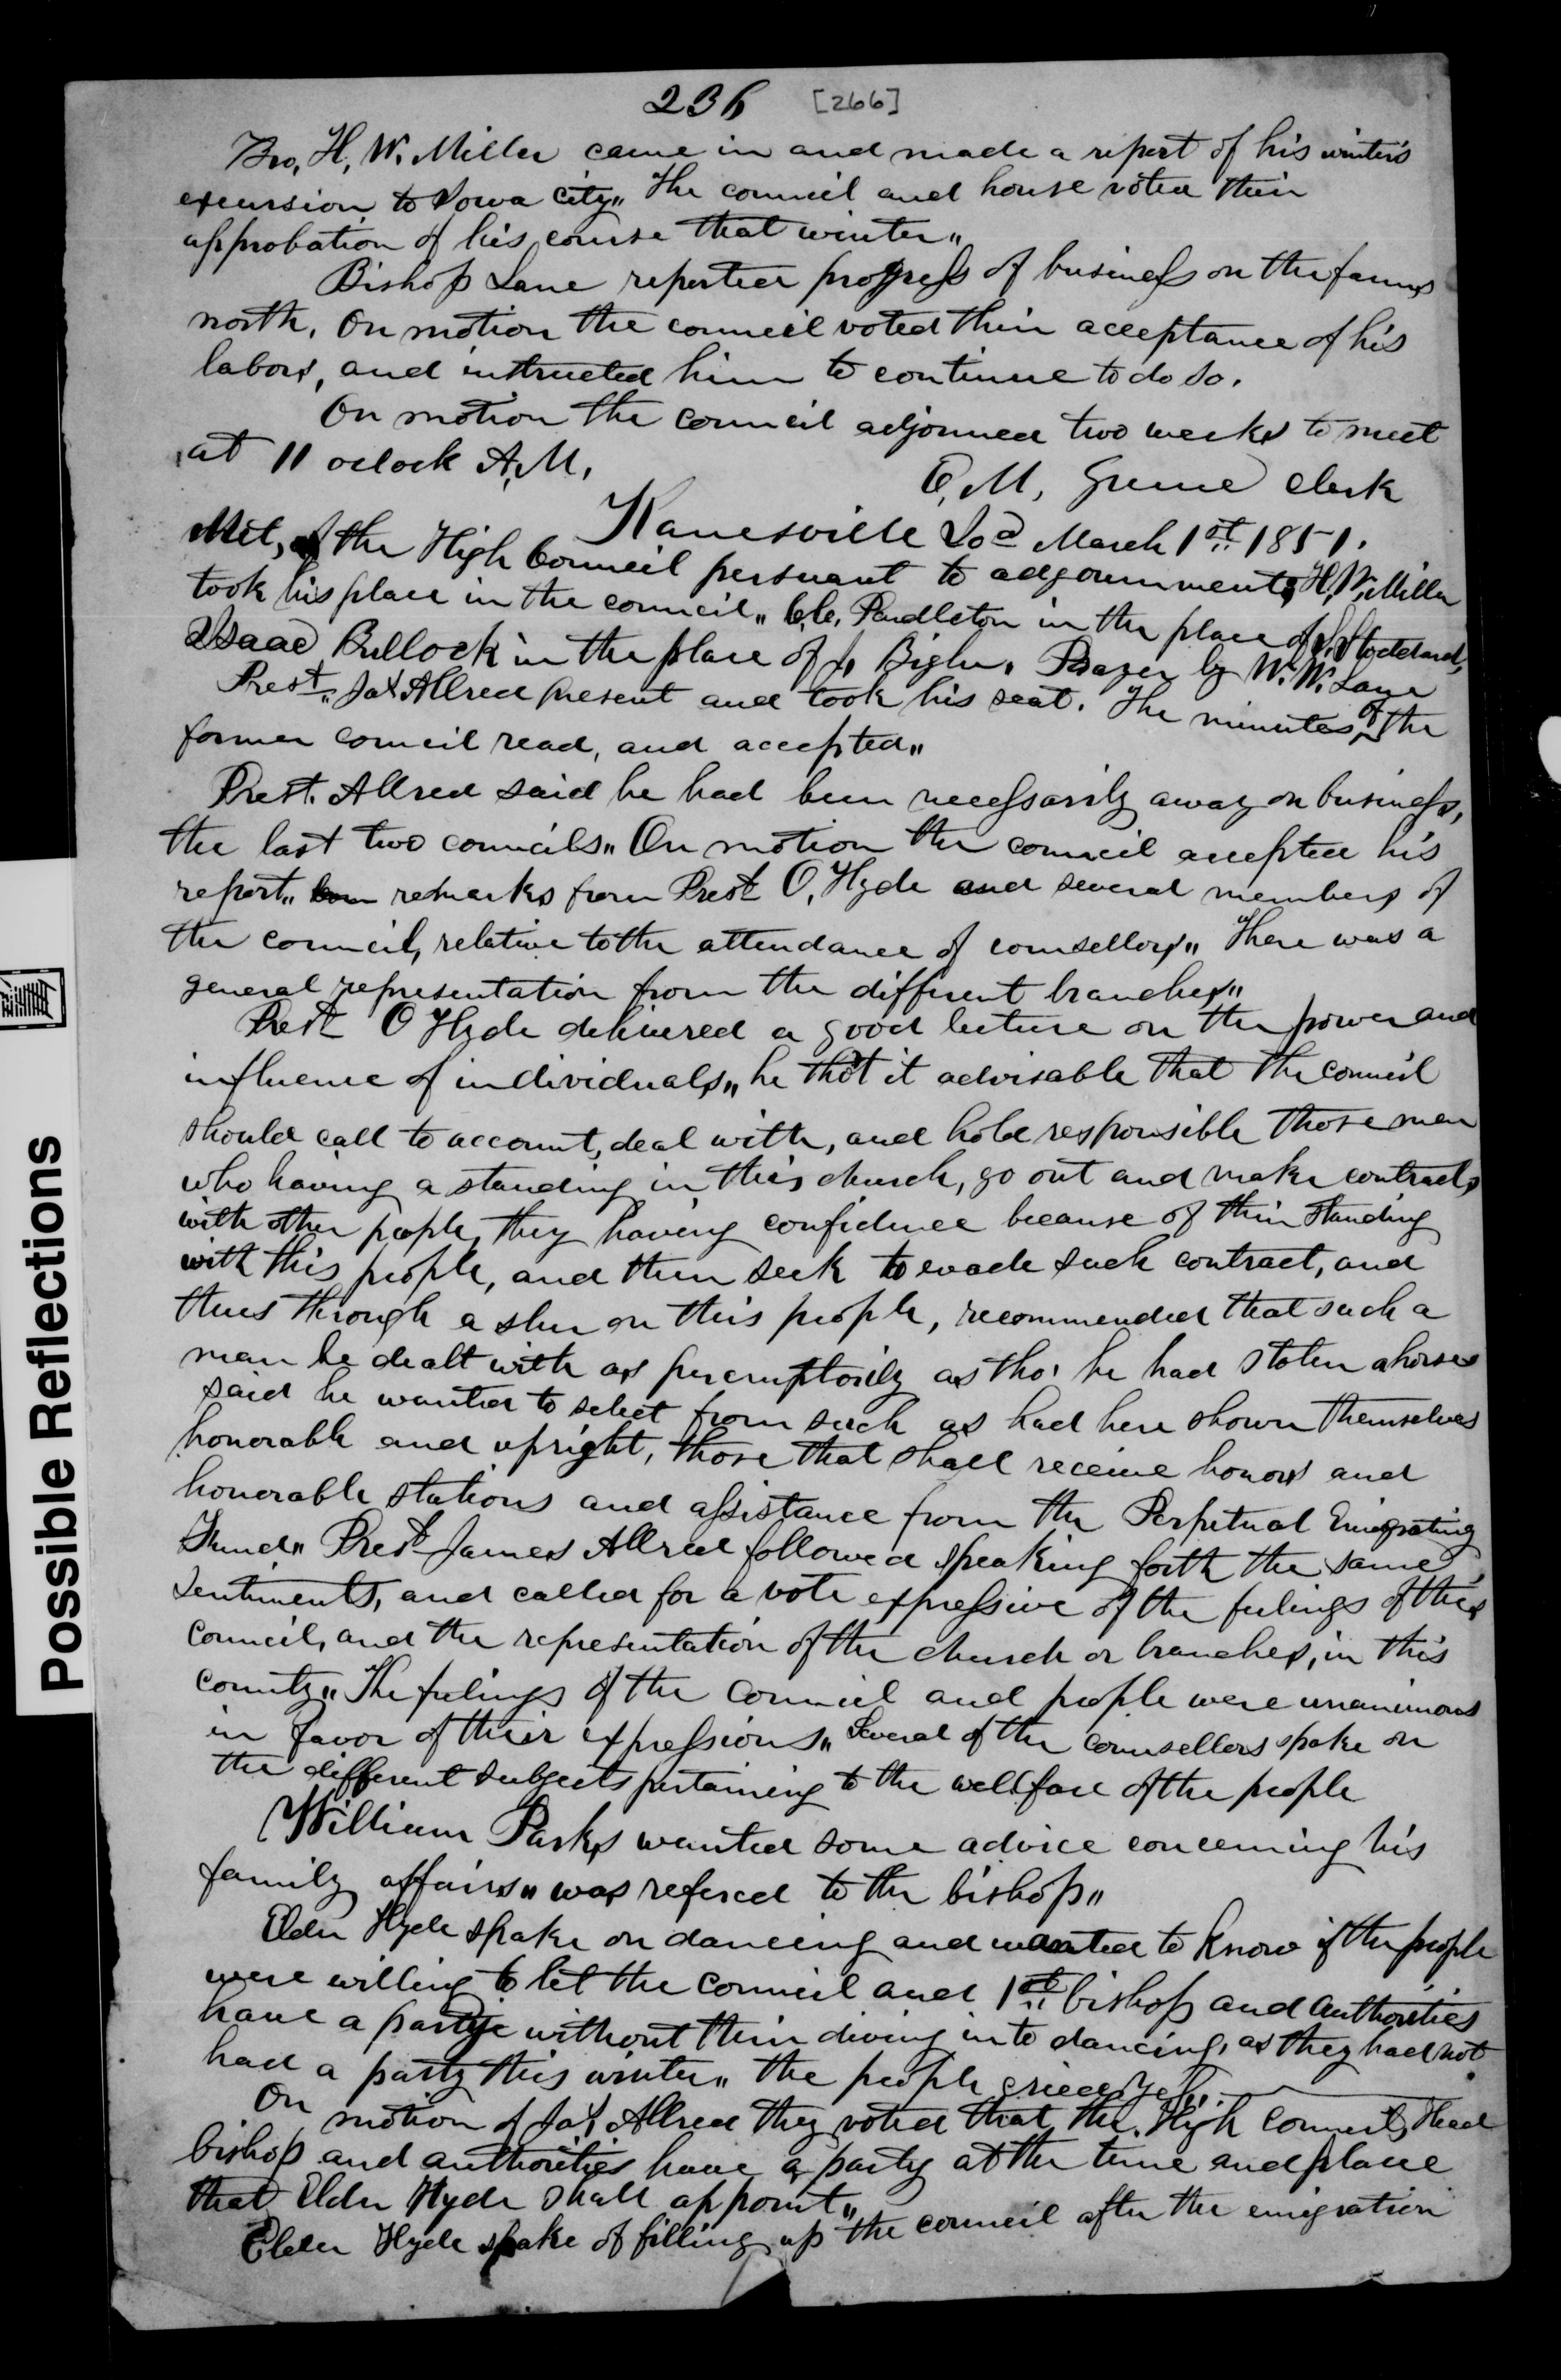 236 [266]
Bro, H, W. Miller came in and made a report of his winter's
excursion to Iowa City,, The council and house voted their
approbation of his course that winter,,
Bishop Lane reported progress of business on the farms
north. On motion the council voted their acceptance of his
labors, and instructed him to continue to do so.
On motion the council adjourned two weeks to meet
at 11 oclock A.M.
Clerk
Kanesville Ioa March 1st 1851.
Met, the High Council persuant to adjournment, H, W. Miller
took his place in the council,, Pendleton in the place of S. Stoddard,
Isaac Bullock in the place of Bigler,, Prayer by W. W. Lane
Prest,, Jas Allred present and took his seat. The minutes of the
former council read, and accepted,,
Prest. Allred said he had been necessarily away on business,
the last two councils,, On motion the council accepted his
report,, remarks from Prest O, Hyde and several members of
the council, relative to the attendance of counsellors,, There was a
general representation from the different branches,,
Prest O Hyde delivered a good lecture on the power and
influence of individuals,, he tho't it advisable that the council
should call to account, deal with, and hold responsible those men
who having a standing in this church, go out and make contracts
with other people, they having confidence because of their standing
with this people, and then seek to evade such contract, and
thus through a slur on this people, recommended that such a
man be dealt with as peremptorily as tho' he had stolen a horse
said he wanted to select from such as had here shown themselves
honorable and upright, those that shall receive honors and
honorable stations and assistance from the Perpetual Emigrating
Fund,, Prest James Allred followed speaking forth the same
sentiments, and called for a vote expressive of the feelings of this
council, and the representation of the church or branches, in this
county,, The feelings of the council and people were unanimous
in favor of their expressions,, Several of the counsellors spoke on
the different subjects pertaining to the wellfare of the people
William Parks wanted some advice concerning his
family affairs,, was refered to the bishop,,
Elder Hyde spake on dancing and wanted to know if the people
were willing to let the council and 1st bishop and authorities
have a party without their diving into dancing, as they had not
had a party this winter,, the people cried yes,
On motion of Jas Allred they voted that the High Council, Head
bishop and authorities have a party at the time and place
that Elder Hyde shall appoint,,
Elder Hyde spake of filling up the council after the emigration
Possible Reflections